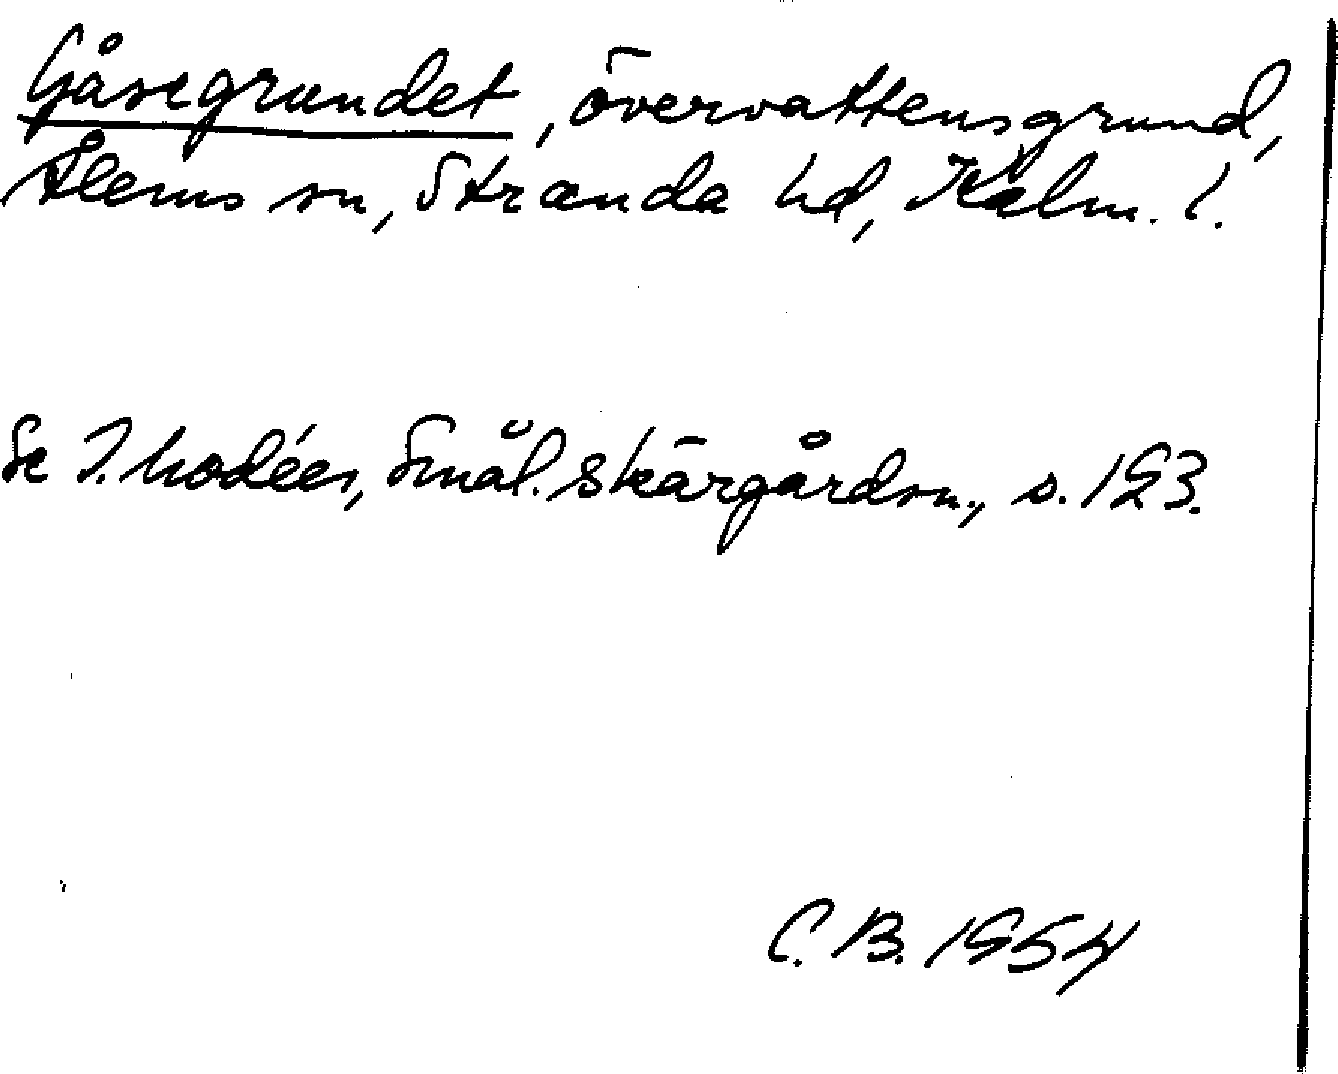 Gåsegrundet, övervattensgrund,
Ålems sn, Stranda hd, Kalm. l.
Se I. Modéer, Smål. skärgårdsn., s. 193.
C. B. 1954